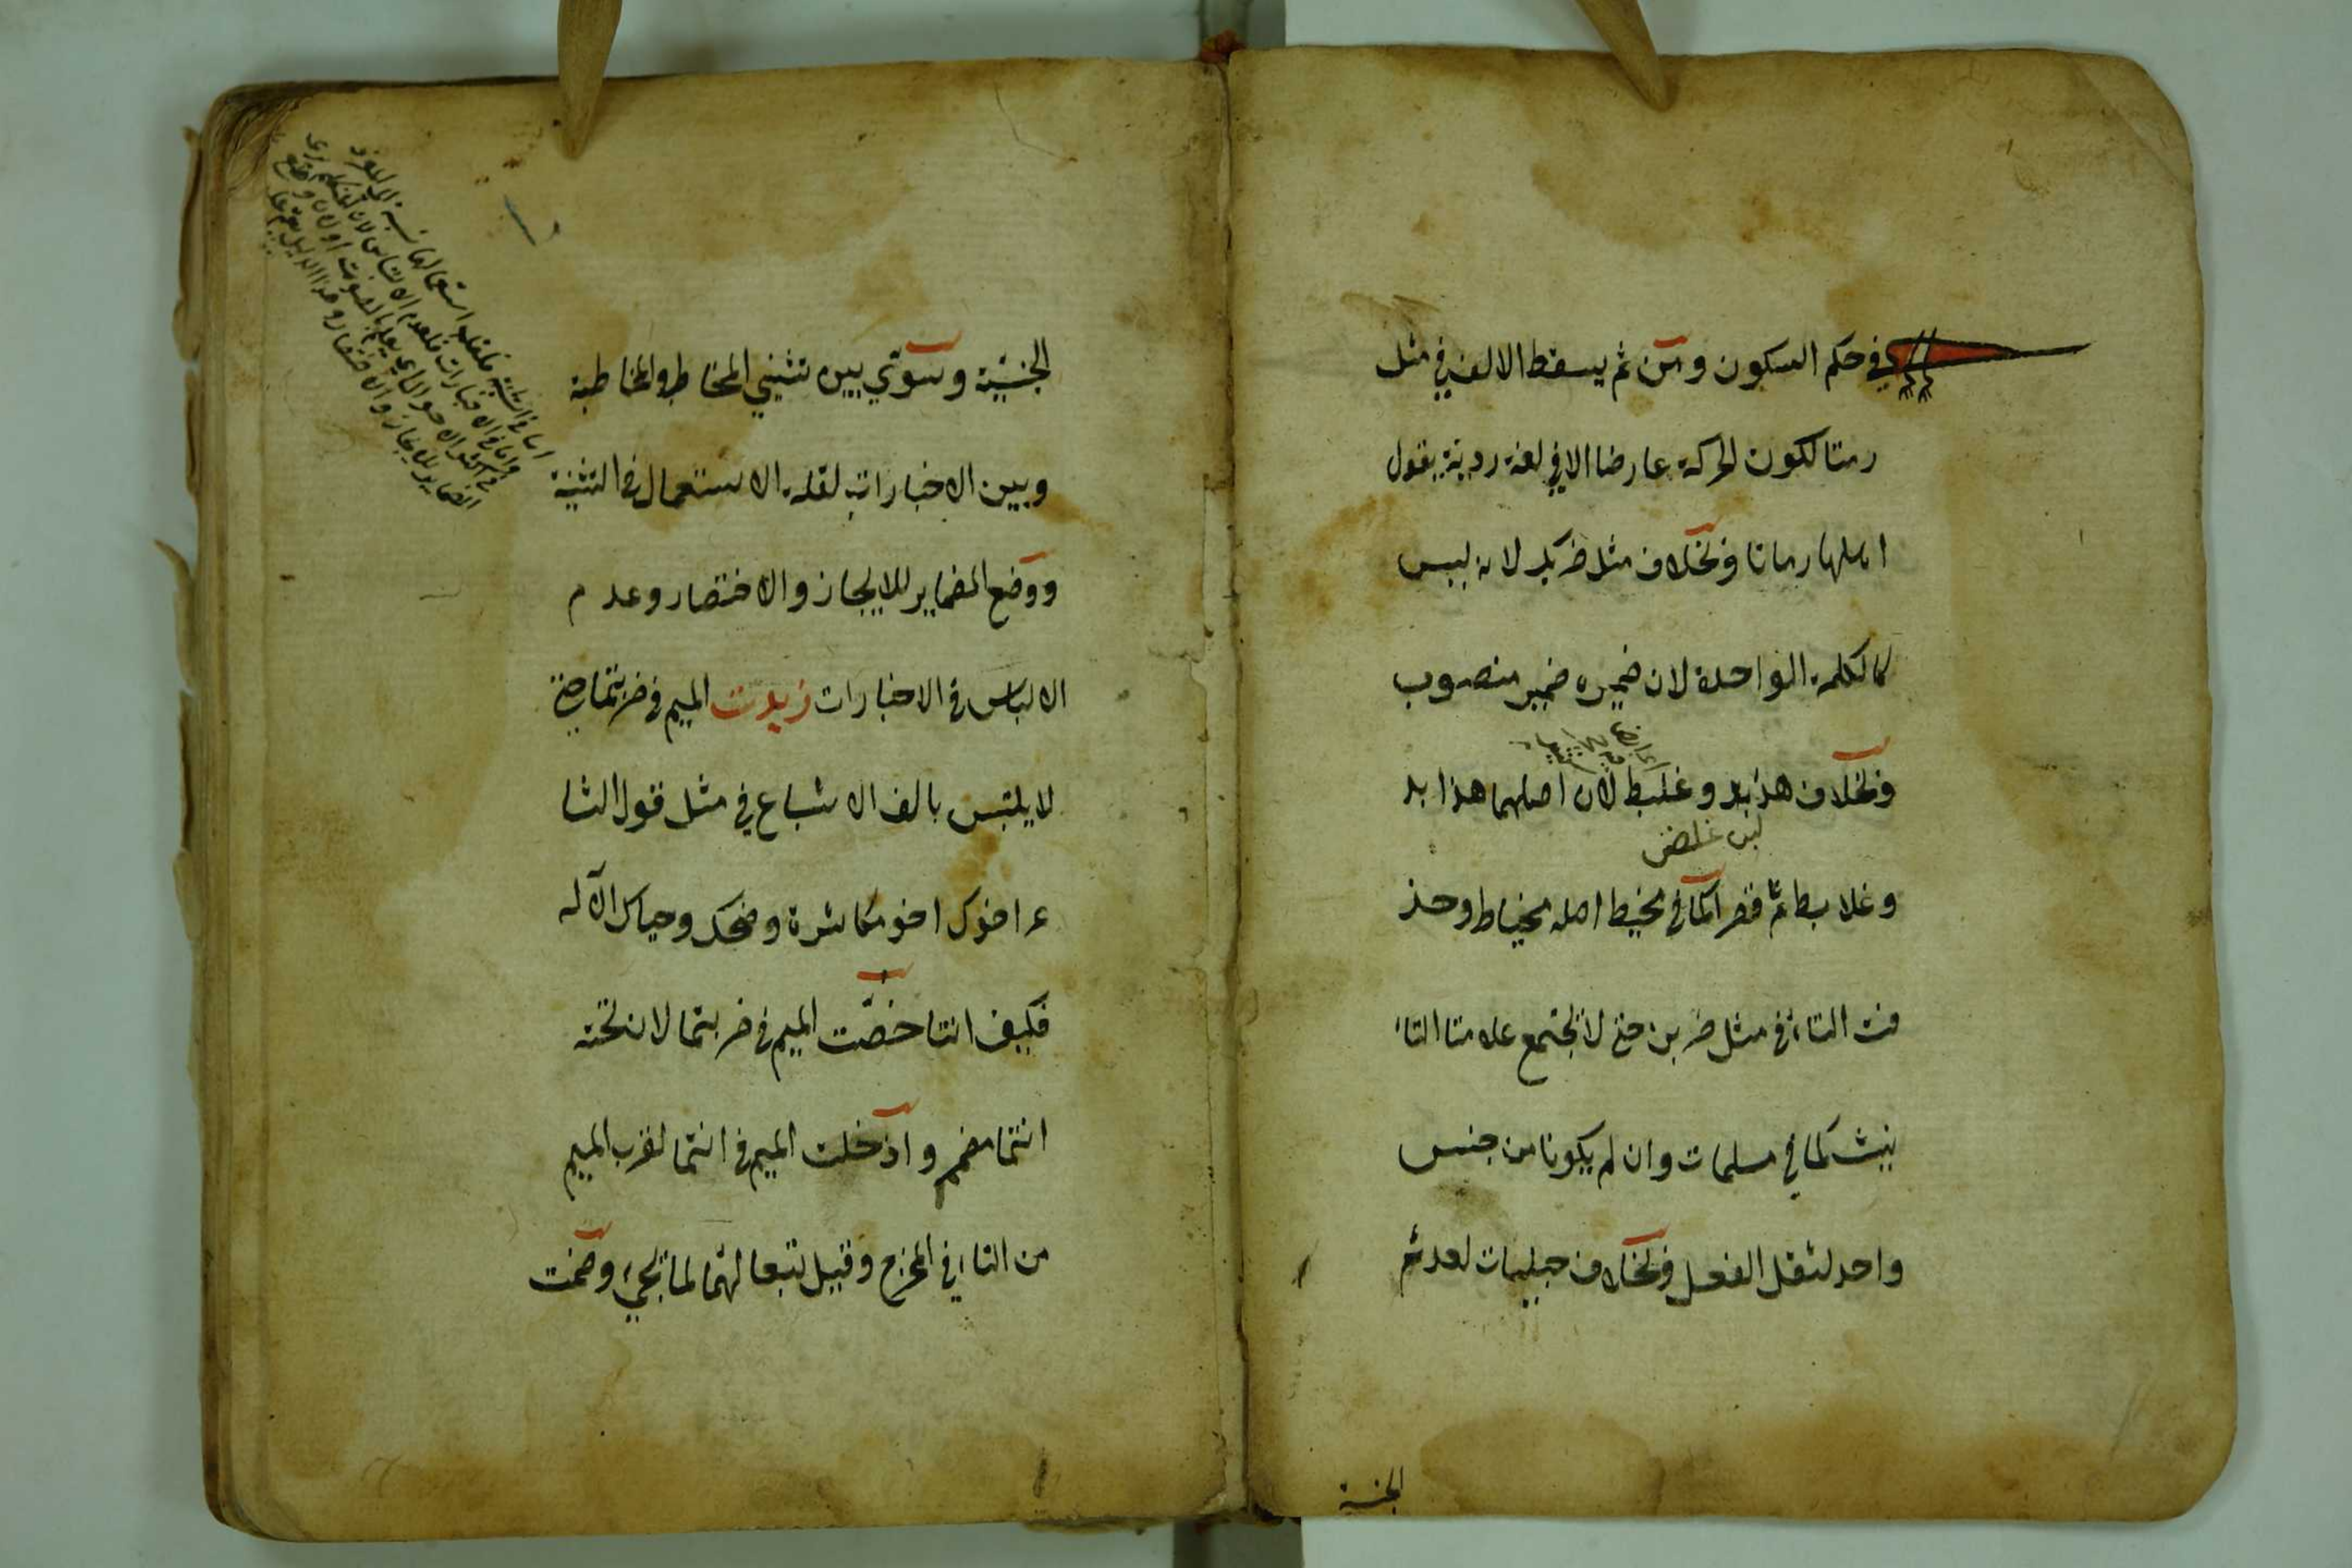 في حكم السكون ومن ثم يسقط الالف في مثل
رمتا لكون الحركة عارضا الا في لغة ردية يقول
اهلها رماتا وبخلاف مثل ضربك لانه ليس
كالكلمة الواحدة لان ضميره ضمير منصوب
وبخلاف هدبد وغلبط لان اصلهما هدابد
لبن غلض
وغلابط ثم قصر كما في مخيط اصله مخياط وحذ
فت التاء في مثل ضربن حتى لا تجتمع علامتا التا
نيث كما في مسلمات وان لم يكونا من جنس
واحد لثقل الفعل وبخلاف حبليات لعدم
الجنسية
الجنسية وسوّي بين تثنيتي المخاطب والمخاطبة
وبين الاخبارات لقلة الاستعمال في التثنية
ووضع الضماير للايجاز والاختصار وعدم
الالباس في الاخبارات زيدت الميم في ضربتما حتى
لا يلتبس بالف الاشباع في مثل قول الشا
عر اخوك اخو مكاشرة وضحك وحياك الاله
فكيف انتا خصّت الميم في ضربتما لان تحته
انتما مضمر وادخلت الميم في انتما لقرب الميم
من التاء في المخرج وقيل تبعا لهما لما تجيء وضمت